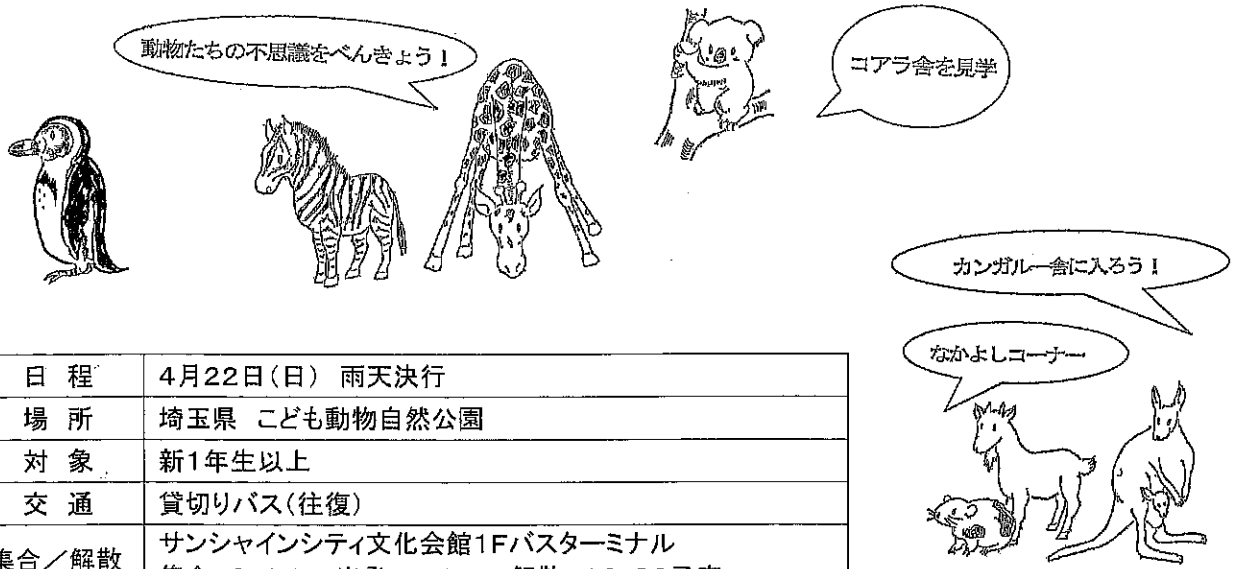 動物たちの不思議をべんきょう！
コアラ舎を見学
カンガルー舎に入ろう！
なかよしコーナー
日 程 4月22日(日) 雨天決行
場 所 埼玉県 こども動物自然公園
対 象 新1年生以上
交 通 貸切りバス(往復)
集合／解散 サンシャインシティ文化会館1Fバスターミナル